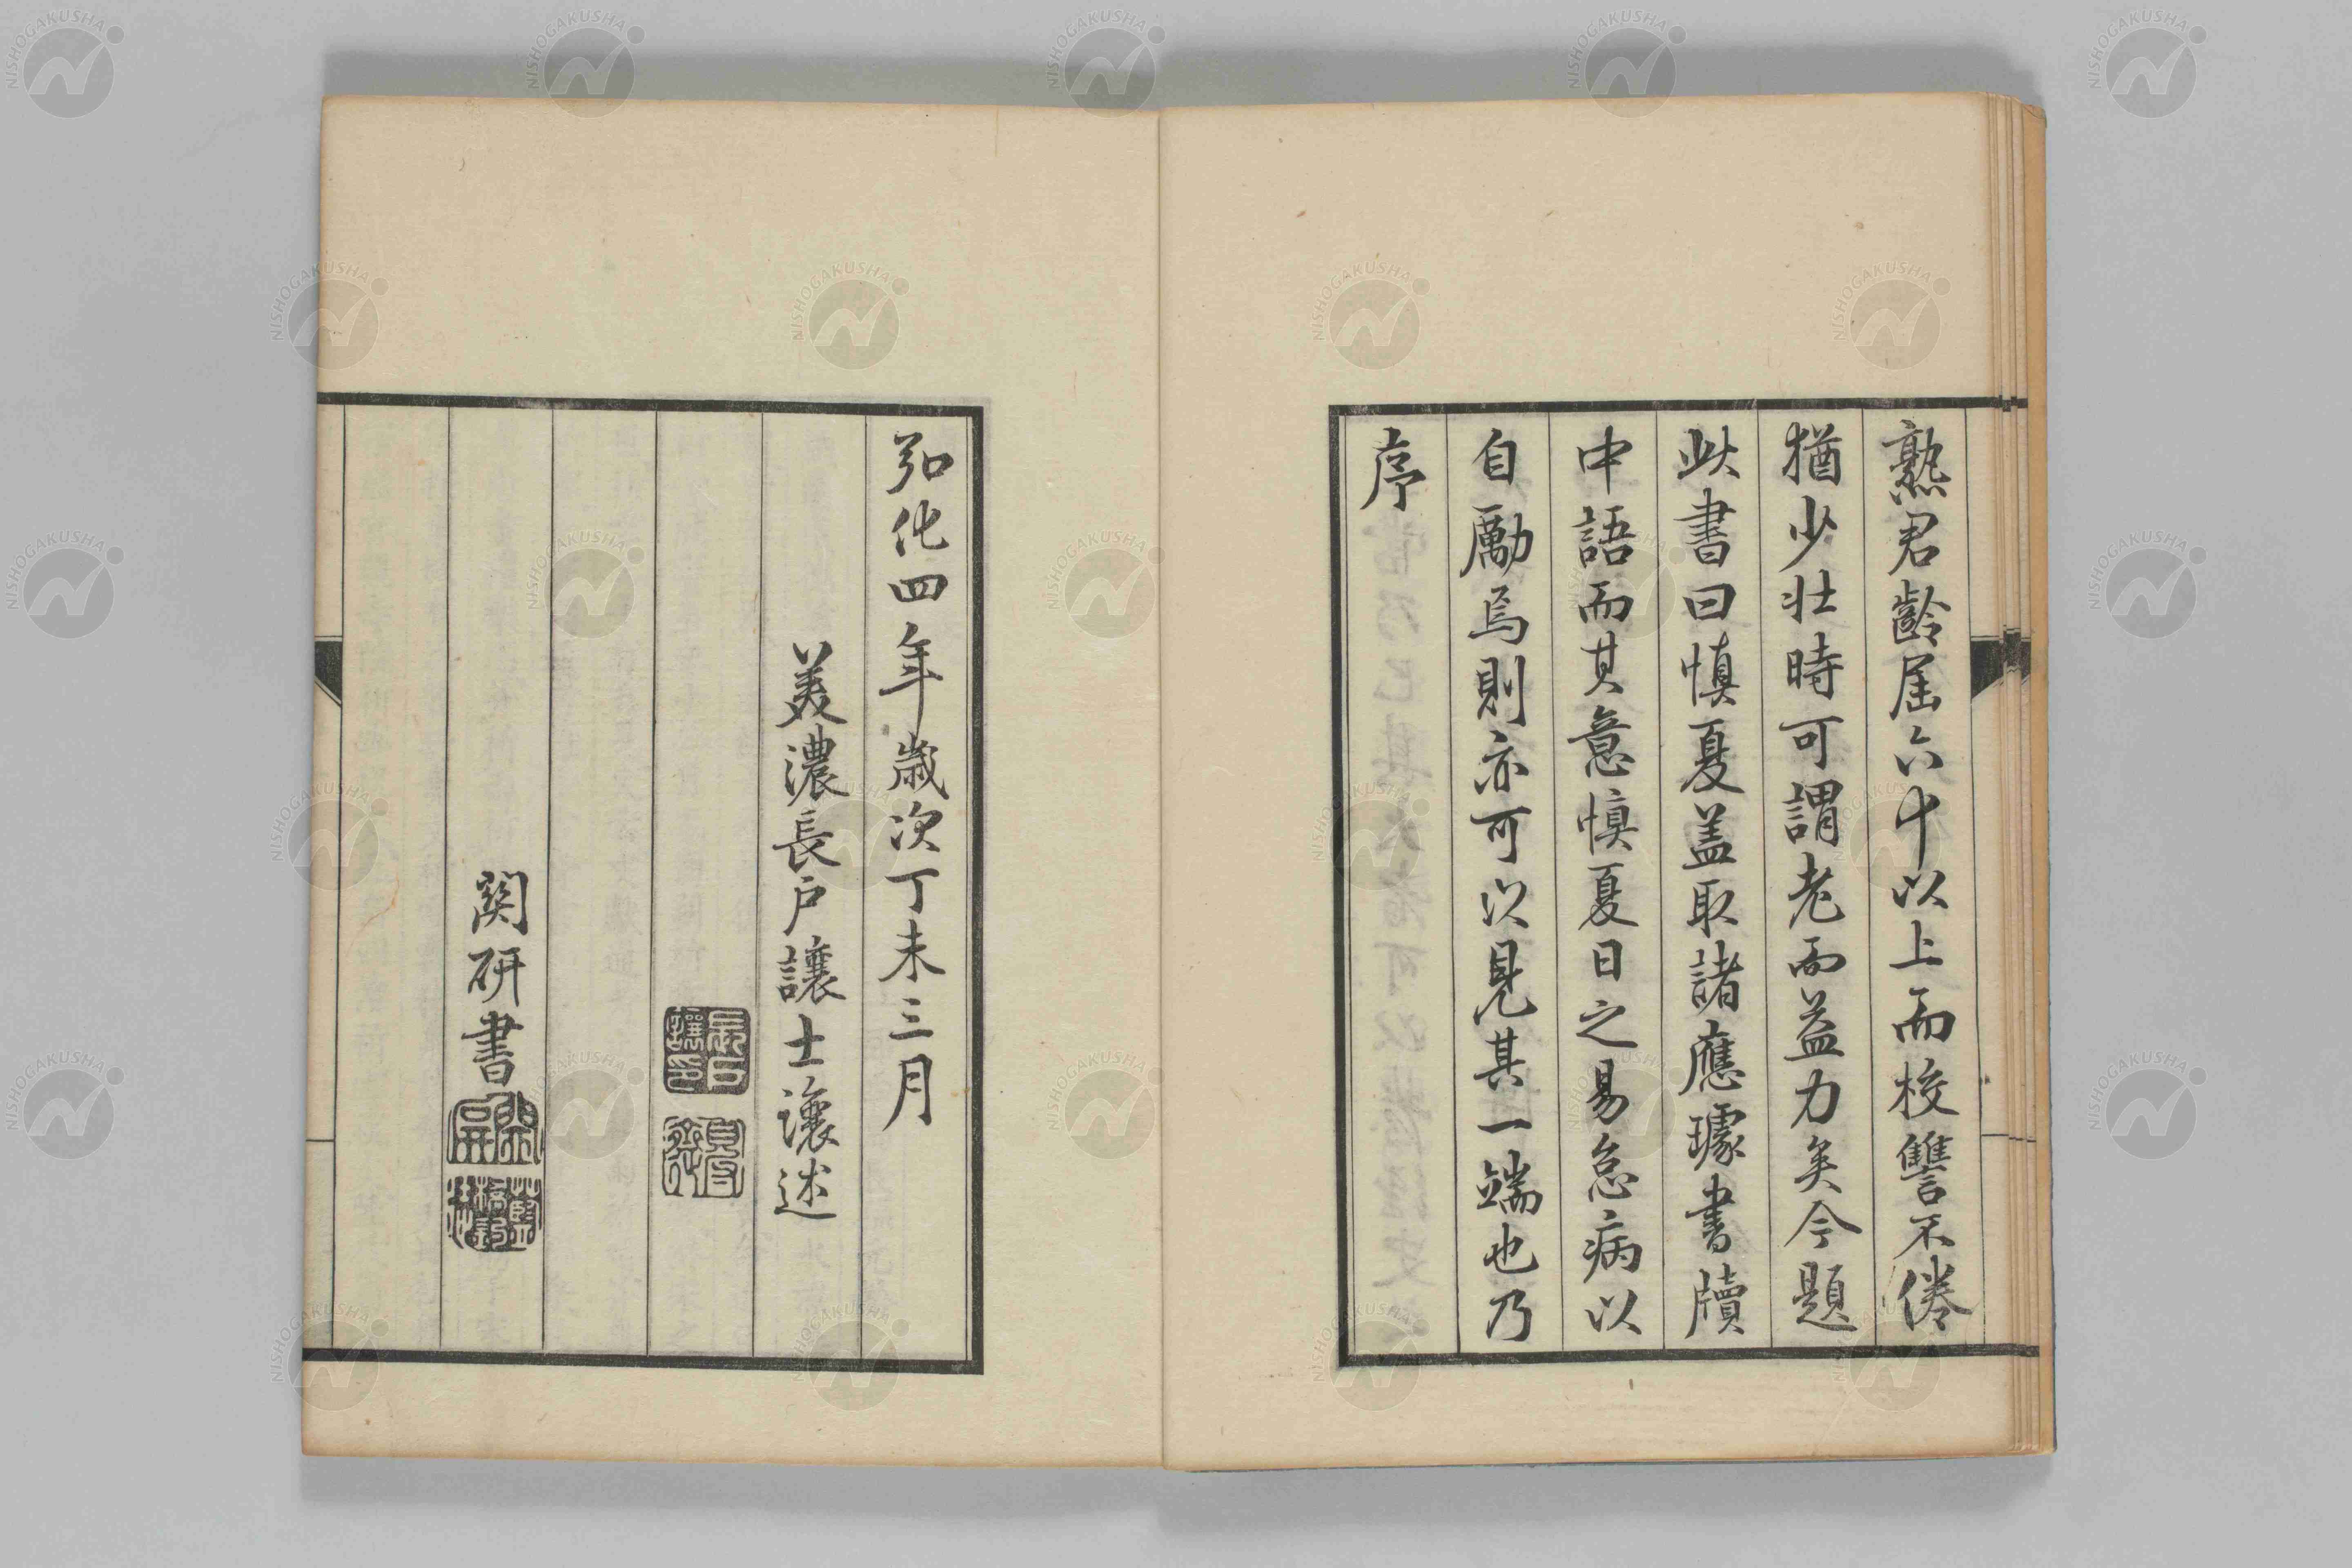 熟君齡届六十以上而校讐不倦
猶少壯時可謂老而益力矣今題
此書曰慎夏蓋取諸應璩書牘
中語而其意慎夏日之易怠病以
自勵焉則亦可以見其一端也乃
序
弘化四年歲次丁未三月
美濃長戸讓士讓述
関研書
NISHOGAKUSHA